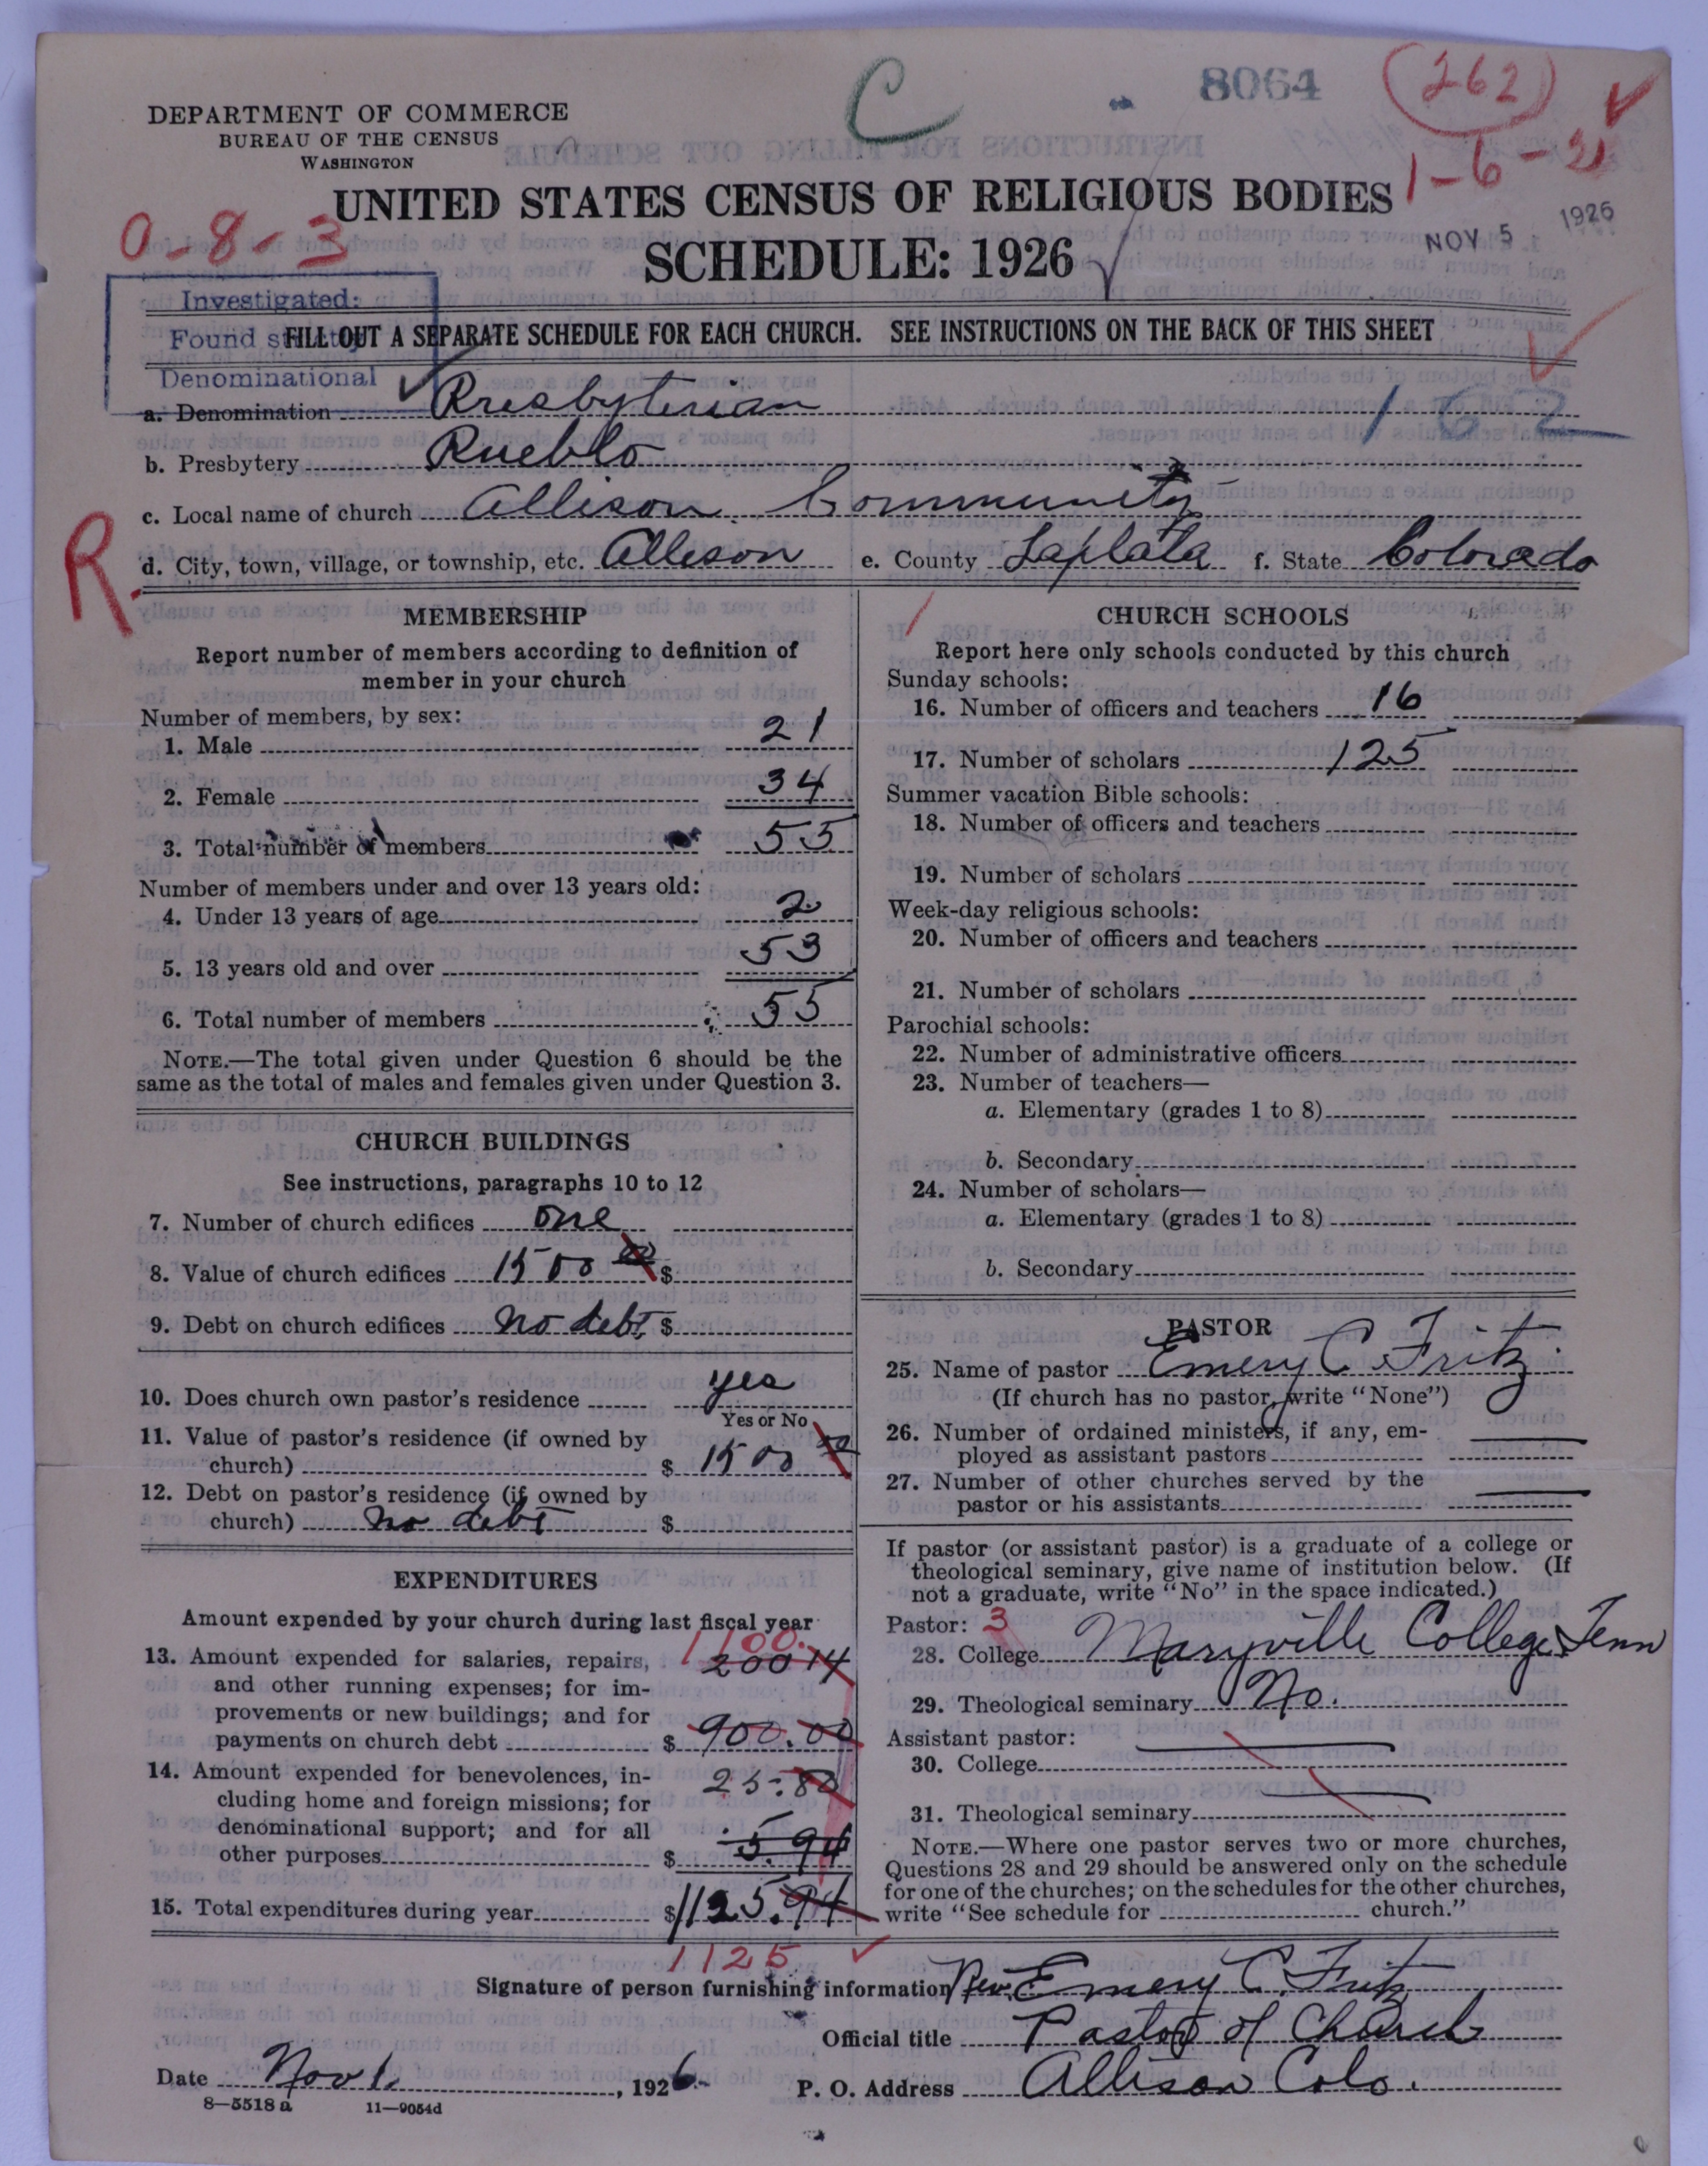 8064
(262)
C
DEPARTMENT OF COMMERCE
BUREAU OF THE CENSUS
WASHINGTON
1-6-21
UNITED STATES CENSUS OF RELIGIOUS BODIES
0-8-3
NOV 5 1926
SCHEDULE: 1926
Investigated:
Found strictly
Denominational
FILL OUT A SEPARATE SCHEDULE FOR EACH CHURCH. SEE INSTRUCTIONS ON THE BACK OF THIS SHEET
a. Denomination Presbyterian 162
b. Presbytery Pueblo
c. Local name of church Allison Community
R.
d. City, town, village, or township, etc. Allison e. County LaPlata f. State Colorado
MEMBERSHIP
Report number of members according to definition of
member in your church
Number of members, by sex:
1. Male 21
2. Female 34
3. Total number of members 55
Number of members under and over 13 years old:
4. Under 13 years of age 2
5. 13 years old and over 53
6. Total number of members 55
NOTE.—The total given under Question 6 should be the
same as the total of males and females given under Question 3.
CHURCH BUILDINGS
See instructions, paragraphs 10 to 12
7. Number of church edifices one
8. Value of church edifices 1500 00 $
9. Debt on church edifices No debt $
10. Does church own pastor's residence yes
Yes or No
11. Value of pastor's residence (if owned by
church) $ 1500 00
12. Debt on pastor's residence (if owned by
church) No debt $
EXPENDITURES
Amount expended by your church during last fiscal year
1100.
13. Amount expended for salaries, repairs, 200 14
and other running expenses; for im-
provements or new buildings; and for
payments on church debt $ 900.00
14. Amount expended for benevolences, in- 25.80
cluding home and foreign missions; for
denominational support; and for all
other purposes $ 5.94
15. Total expenditures during year $1125.94
1125
CHURCH SCHOOLS
Report here only schools conducted by this church
Sunday schools:
16. Number of officers and teachers 16
17. Number of scholars 125
Summer vacation Bible schools:
18. Number of officers and teachers
19. Number of scholars
Week-day religious schools:
20. Number of officers and teachers
21. Number of scholars
Parochial schools:
22. Number of administrative officers
23. Number of teachers—
a. Elementary (grades 1 to 8)
b. Secondary
24. Number of scholars—
a. Elementary (grades 1 to 8)
b. Secondary
PASTOR
25. Name of pastor Emery C. Fritz
(If church has no pastor, write "None")
26. Number of ordained ministers, if any, em-
ployed as assistant pastors
27. Number of other churches served by the
pastor or his assistants
If pastor (or assistant pastor) is a graduate of a college or
theological seminary, give name of institution below. (If
not a graduate, write "No" in the space indicated.)
Pastor: 3
28. College Maryville College, Tenn
29. Theological seminary No.
Assistant pastor:
30. College
31. Theological seminary
NOTE.—Where one pastor serves two or more churches,
Questions 28 and 29 should be answered only on the schedule
for one of the churches; on the schedules for the other churches,
write "See schedule for church."
Signature of person furnishing information Rev. Emery C. Fritz
Official title Pastor of Church
Date Nov 1. , 1926 P. O. Address Allison Colo.
8—5518 a 11—9054d